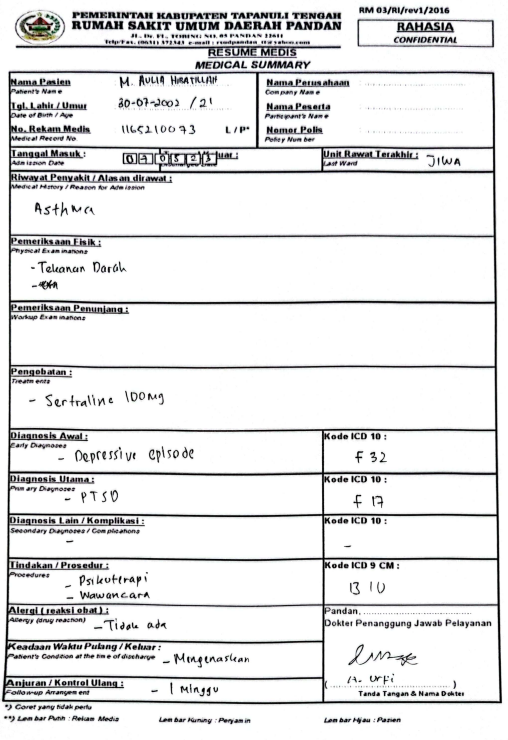 RM 03/RI/rev1/2016
PEMERINTAH KABUPATEN TAPANULI TENGAH
RUMAH SAKIT UMUM DAERAH PANDAN
JL. Dr. FL. TOBING NO. 05 PANDAN 22611
Telp/Fax. (0631) 372343 e-mail :
RAHASIA
CONFIDENTIAL
RESUME MEDIS
MEDICAL SUMMARY
Nama Pasien M. AULIA HIRATILLAH
Patient's Name
Nama Perusahaan
Company Name
Tgl. Lahir / Umur 30-07-2002 / 21
Date of Birth / Age
Nama Peserta
Participant's Name
No. Rekam Medis 1165210073 L / P*
Medical Record No.
Nomor Polis
Policy Number
Tanggal Masuk : 070523 uar :
Admission Date
Unit Rawat Terakhir : JIWA
Last Ward
Riwayat Penyakit / Alasan dirawat :
Medical History / Reason for Admission
Asthma
Pemeriksaan Fisik :
Physical Examinations
- Tekanan Darah
-
Pemeriksaan Penunjang :
Workup Examinations
Pengobatan :
Treatments
- Sertraline 100mg
Diagnosis Awal :
Early Diagnoses
- Depressive episode
Kode ICD 10 :
F 32
Diagnosis Utama :
Primary Diagnoses
- PTSD
Kode ICD 10 :
F 17
Diagnosis Lain / Komplikasi :
Secondary Diagnoses / Complications
-
Kode ICD 10 :
-
Tindakan / Prosedur :
Procedures
- Psikoterapi
- Wawancara
Kode ICD 9 CM :
Alergi ( reaksi obat ) :
Allergy (drug reaction)
- Tidak ada
Pandan, ........................
Dokter Penanggung Jawab Pelayanan
Keadaan Waktu Pulang / Keluar :
Patient's Condition at the time of discharge
- Mengenaskan
Anjuran / Kontrol Ulang :
Follow-up Arrangement
- 1 Minggu
( A. Urfi )
Tanda Tangan & Nama Dokter
*) Coret yang tidak perlu
**) Lembar Putih : Rekam Medis Lembar Kuning : Penjamin Lembar Hijau : Pasien